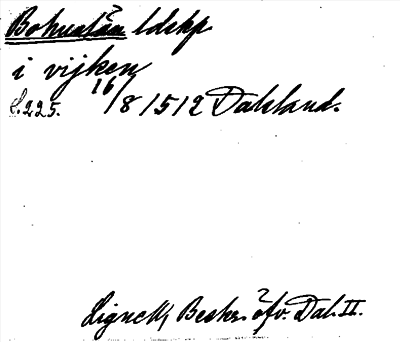 Bohuslän ldskp
i vijken
S.225. 16/8 1512 Dalsland.
Lignell, Beskr. öfv. Dal. II.